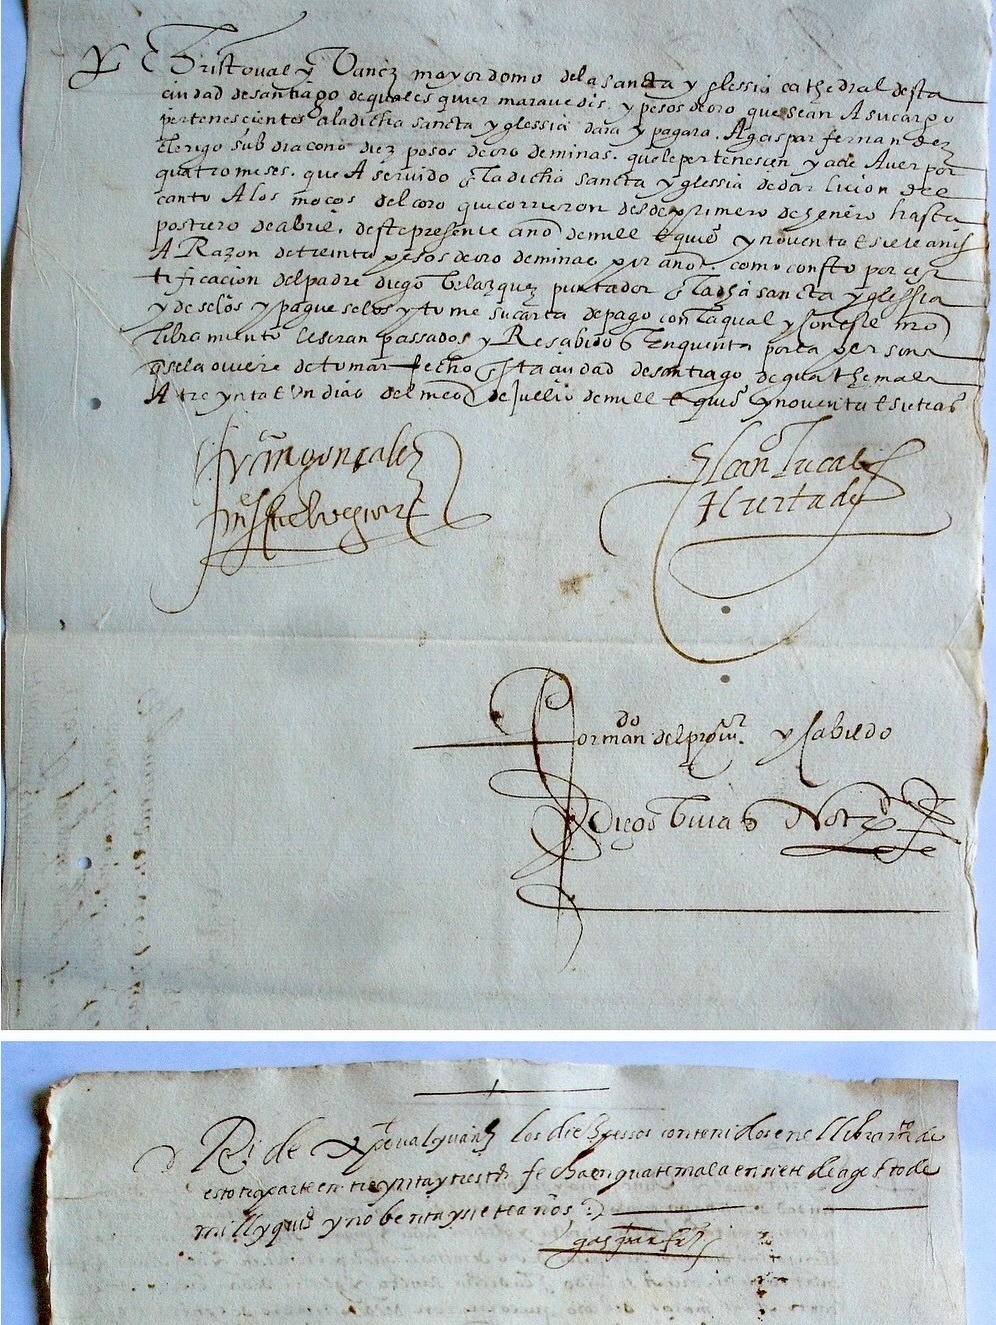 Cristoval yvañez mayordomo dela sancta yglessia cathedral desta
ciudad de santiago de quales quier maravedis y pesos de oro que sean A su cargo
pertenescientes ala dicha sancta yglessia dara y pagara. A gaspar fernandez
clerigo subdiacono diez pesos de oro de minas. que le pertenescen y a de Aver por
quatro meses. que A servido la dicha sancta yglessia de dar licion del
canto A los moços del coro que corrieron desde primero de henero hasta
postrero de abril. deste presente año de mill E quis y noventa E siete años
A Razon de treinta pesos de oro de minas por año. como consto por cer
tificacion del padre diego Velazquez puntador la dha sancta yglessia
y deselos y pague selos y tome su carta de pago con la qual y con este nro
libramiento le seran passados y Resabidos En quenta por la persona
q se la oviere de tomar fecho En la ciudad de santiago de guathemala
A treynta E Un dias del mes de jullio de mill E quis y noventa E siete as
Lucas
Hurtado
Por mando del y Cabildo
Diego Notº
Rⁱ de xpoval yvañz los diez pessos contenidos en el libramto de
esto tra parte en fecha en guatemala en siete de agosto de
mill y quis y nobenta y siete años
gaspar frz